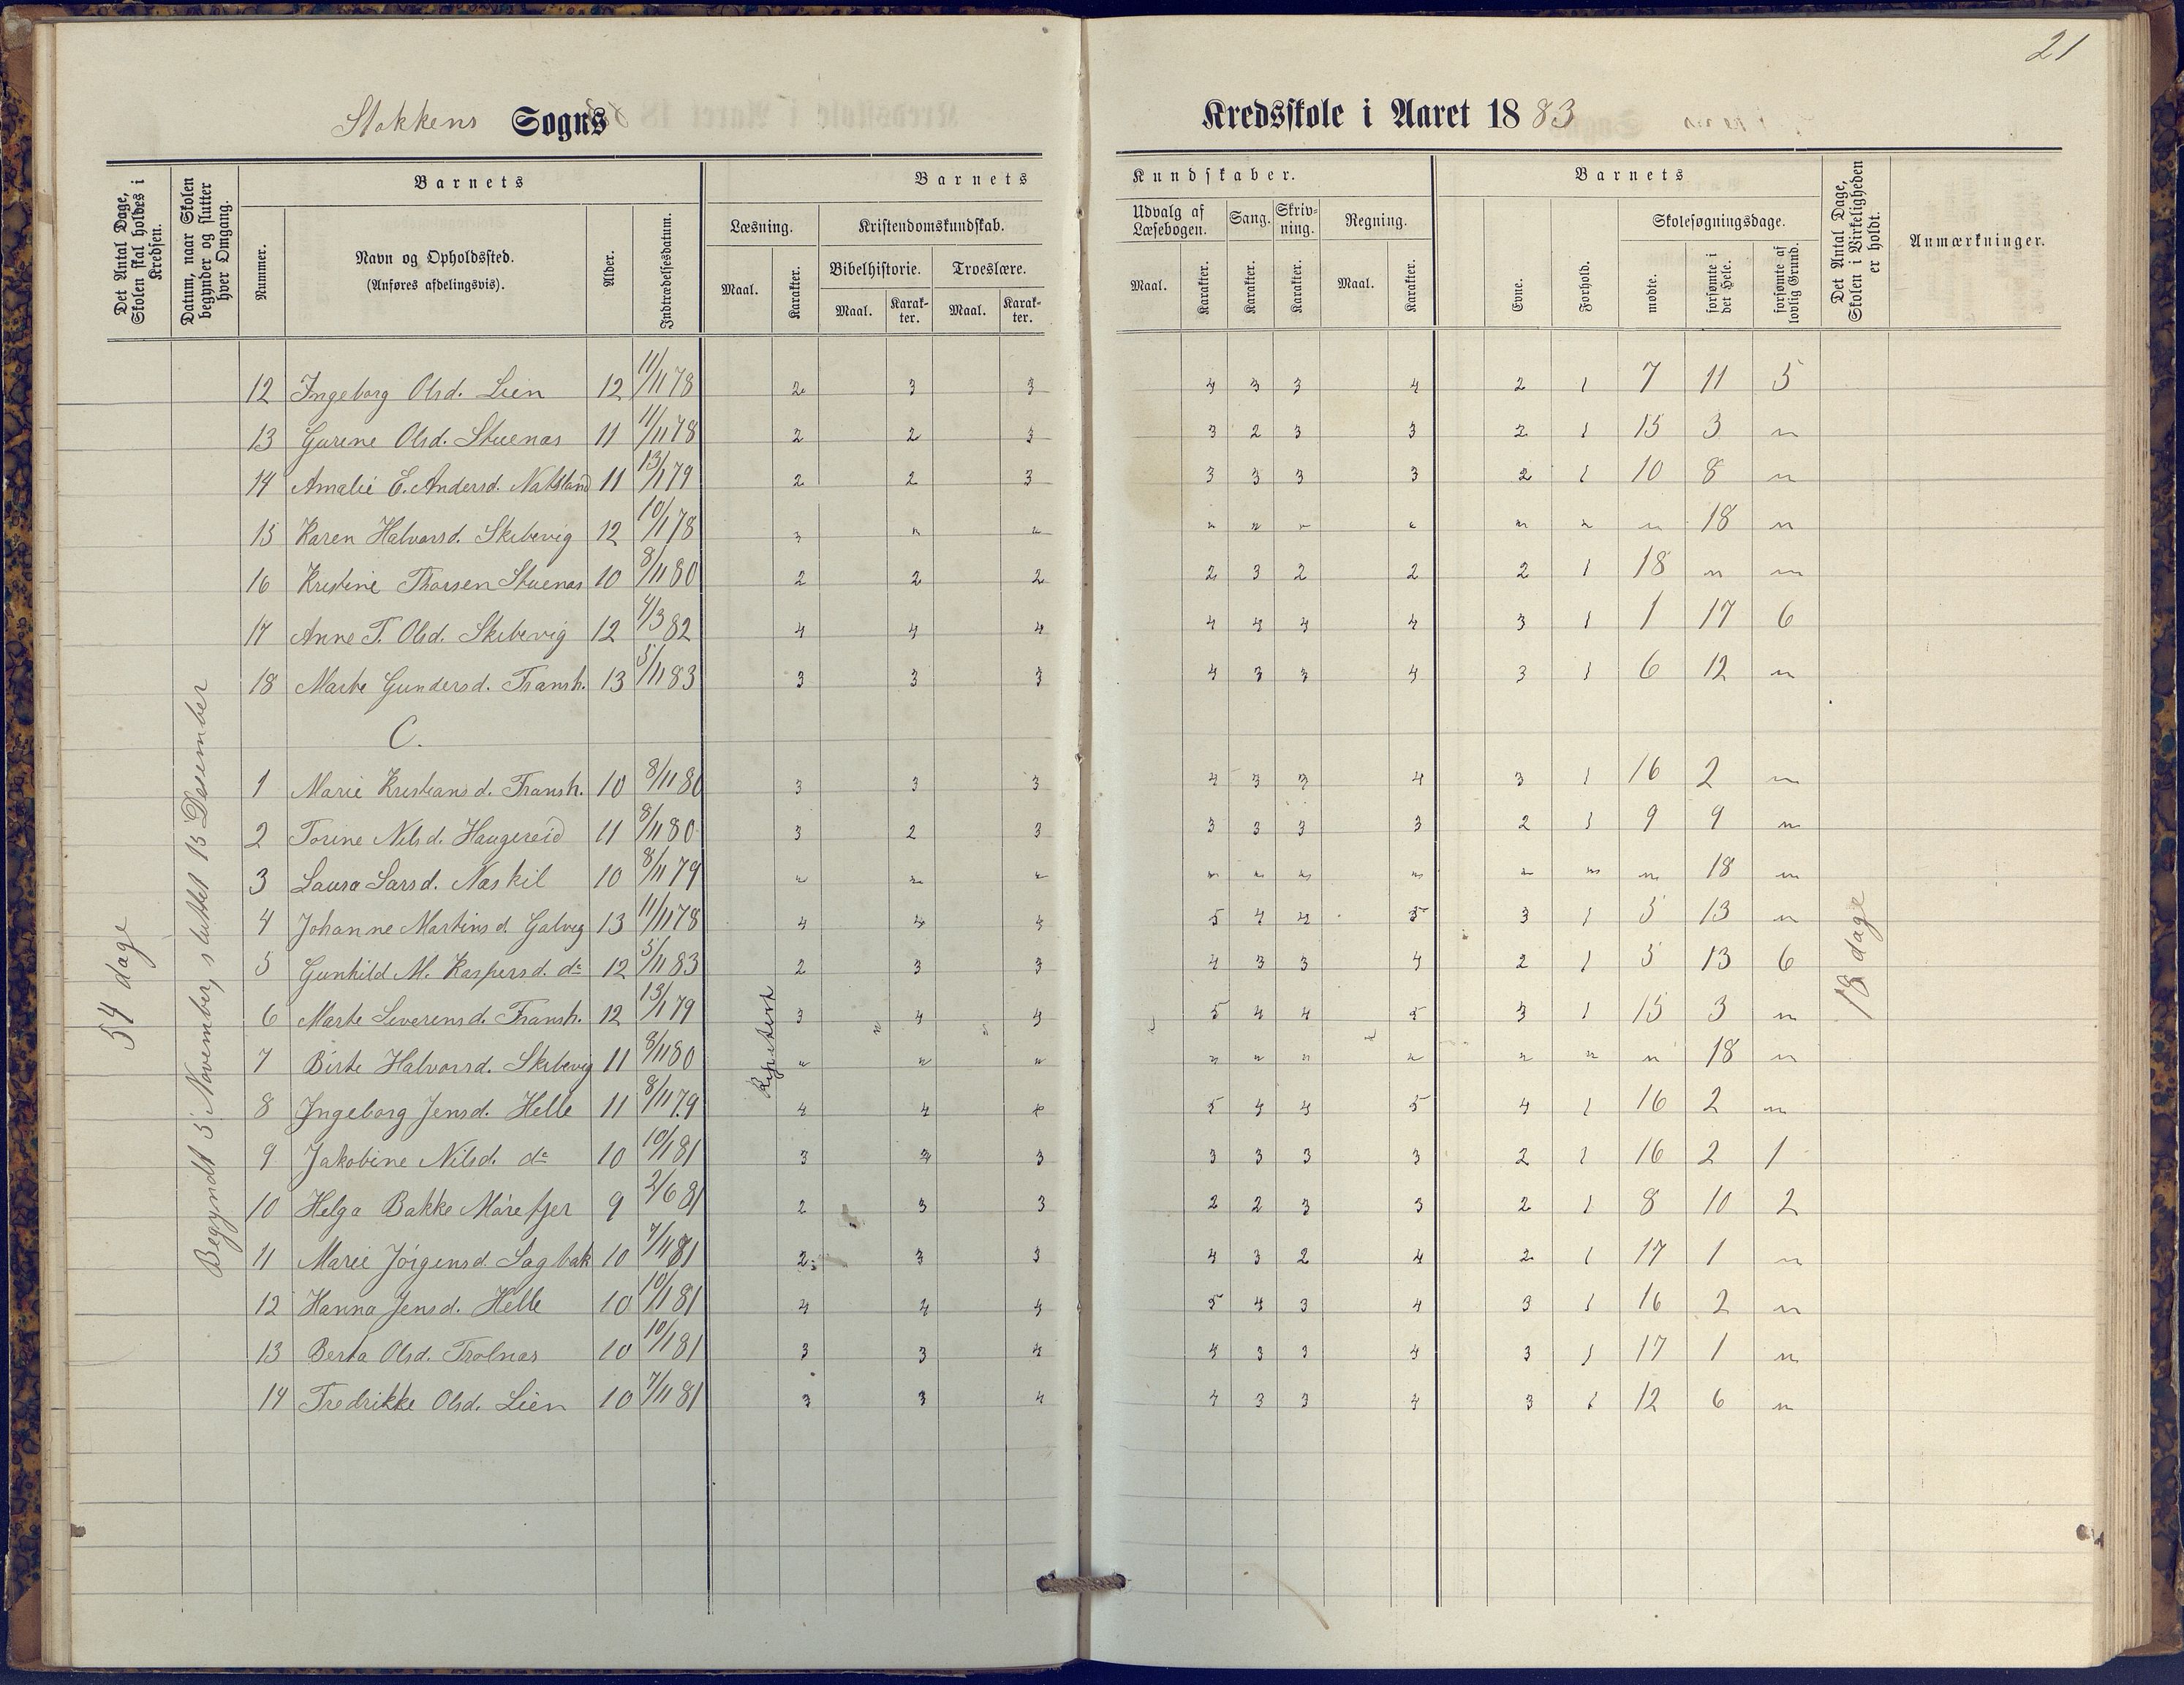 21
Stokkens Sogns
Kredsskole i Aaret 1883
Det Antal Dage, Skolen skal holdes i Kredsen.
Datum, naar Skolen begynder og slutter hver Omgang.
Barnets
Nummer.
Navn og Opholdssted.
(Anføres afdelingsvis).
Alder.
Indtrædelsesdatum.
Barnets
Læsning.
Maal.
Karakter.
Kristendomskundskab.
Bibelhistorie.
Maal.
Karakter.
Troeslære.
Maal.
Karakter.
Kundskaber.
Udvalg af Læsebogen.
Maal.
Karakter.
Sang.
Karakter.
Skrivning.
Karakter.
Regning.
Maal.
Karakter.
Barnets
Evne.
Forhold.
Skolesøgningsdage.
mødte.
forsømte i det Hele.
forsømte af lovlig Grund.
Det Antal Dage, Skolen i Virkeligheden er holdt.
Anmærkninger.
54 dage
Begyndt 5 November, sluttet 15 Desember
12 Ingeborg Olsd. Lien 12 11/11 78 2 3 3 4 3 3 4 2 1 7 11 5
13 Gurene Olsd. Stuenas 11 11/11 78 2 2 3 3 2 3 3 2 1 15 3 "
14 Amalie E. Andersd. 11 13/1 79 2 2 3 3 3 3 3 2 1 10 8 "
15 Karen Halvorsd. Skibevig 12 10/1 78 3 " " " " " " " " " 18 "
16 Kristine Thorsen Stuenas 10 8/11 80 2 2 2 2 3 2 2 2 1 18 " "
17 Anne T. Olsd. Skibevig 12 4/3 82 4 4 4 4 4 4 4 3 1 1 17 6
18 Marte Gundersd. Fransh. 13 5/11 83 3 3 3 4 3 3 4 3 1 6 12 "
C.
1 Marie Kristiansd. Fransh. 10 8/11 80 3 3 3 4 3 3 4 3 1 16 2 "
2 Torine Nilsd. Haugereid 11 8/11 80 3 2 3 3 3 3 3 2 1 9 9 "
3 Laura Larsd. Naskil 10 8/11 79 " " " " " " " " " " 18 "
4 Johanne Martinsd. Galvig 13 11/11 78 4 4 4 5 4 4 5 3 1 5 13 "
5 Gunhild M. Kaspersd. do 12 5/11 83 2 3 3 4 3 3 4 2 1 5 13 6
6 Marte Severensd. Fransh. 12 13/1 79 3 4 4 5 4 4 5 3 1 15 3 "
7 Birte Halvorsd. Skibevig 11 8/11 80 " " " " " " " " " " 18 "
8 Ingeborg Jensd. Helle 11 8/11 79 4 4 4 5 4 4 5 4 1 16 2 "
9 Jakobine Nilsd. do 10 10/1 81 3 3 3 3 3 3 3 2 1 16 2 1
10 Helga Bakke Mórefjer 9 2/6 81 2 3 3 2 2 3 3 2 1 8 10 2
11 Marie Jórgensd. Sagbak 10 7/11 81 2 3 3 4 3 2 4 2 1 17 1 "
12 Hanna Jensd. Helle 10 10/1 81 4 4 4 5 4 3 4 3 1 16 2 "
13 Berta Olsd. Trolnas 10 10/1 81 3 3 4 4 3 3 4 3 1 17 1 "
14 Fredrikke Olsd. Lien 10 7/11 81 3 3 4 4 3 3 4 3 1 12 6 "
Repetert
18 dage